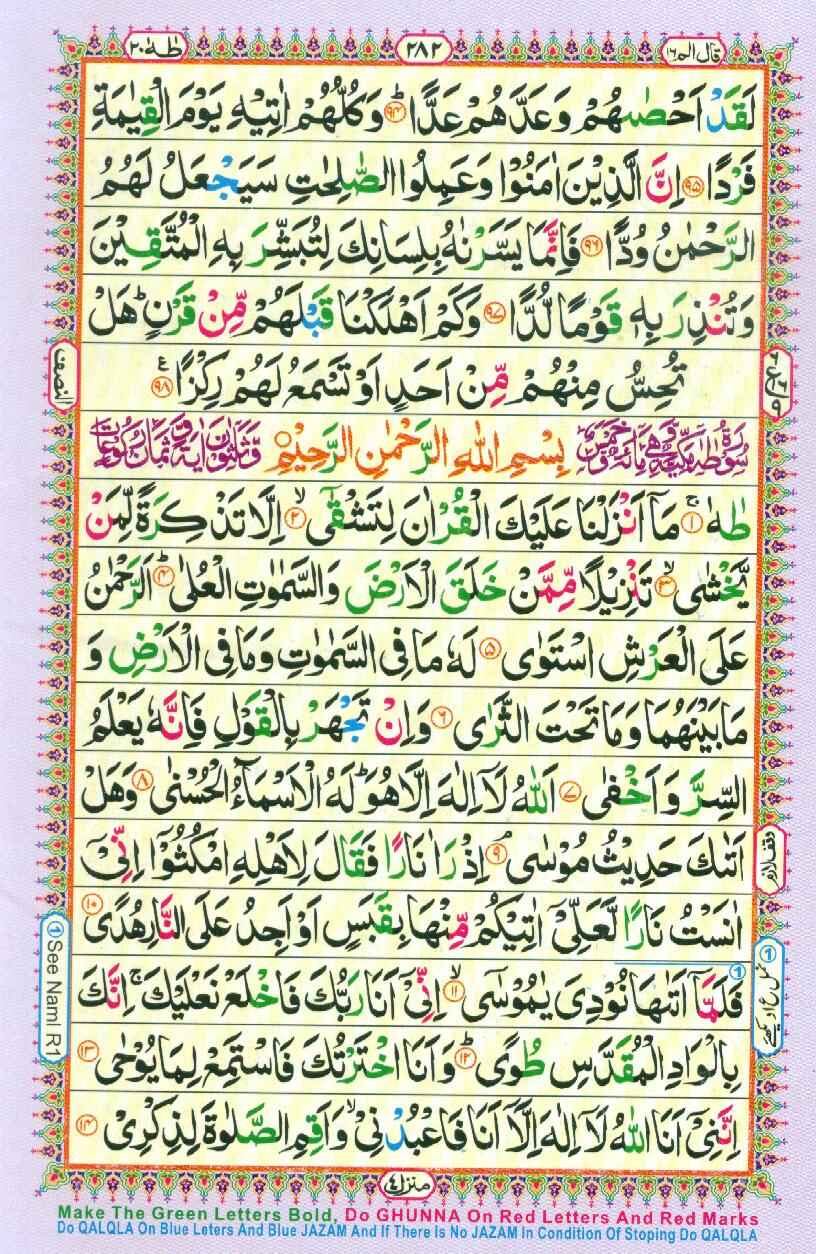 قال الم ١٦
٢٨٢
طٰهٰ ٢٠
لَقَدْ اَحْصٰىهُمْ وَعَدَّهُمْ عَدًّا ؕ ﴿۹۴﴾ وَكُلُّهُمْ اٰتِيْهِ يَوْمَ الْقِيٰمَةِ
فَرْدًا ﴿۹۵﴾ اِنَّ الَّذِيْنَ اٰمَنُوْا وَعَمِلُوا الصّٰلِحٰتِ سَيَجْعَلُ لَهُمُ
الرَّحْمٰنُ وُدًّا ﴿۹۶﴾ فَاِنَّمَا يَسَّرْنٰهُ بِلِسَانِكَ لِتُبَشِّرَ بِهِ الْمُتَّقِيْنَ
وَتُنْذِرَ بِهٖ قَوْمًا لُّدًّا ﴿۹۷﴾ وَكَمْ اَهْلَكْنَا قَبْلَهُمْ مِّنْ قَرْنٍ ؕ هَلْ
تُحِسُّ مِنْهُمْ مِّنْ اَحَدٍ اَوْ تَسْمَعُ لَهُمْ رِكْزًا ﴿۹۸﴾ ع
النصف
سُوْرَةُ طٰهٰ مَكِّيَّةٌ وَّهِيَ مِائَةٌ وَّخَمْسٌ بِسْمِ اللّٰهِ الرَّحْمٰنِ الرَّحِيْمِ وَّثَلٰثُوْنَ اٰيَةً وَّثَمَانُ رُكُوْعَاتٍ
طٰهٰ ۚ ﴿۱﴾ مَاۤ اَنْزَلْنَا عَلَيْكَ الْقُرْاٰنَ لِتَشْقٰۤى ۙ ﴿۲﴾ اِلَّا تَذْكِرَةً لِّمَنْ
يَّخْشٰى ۙ ﴿۳﴾ تَنْزِيْلًا مِّمَّنْ خَلَقَ الْاَرْضَ وَالسَّمٰوٰتِ الْعُلٰى ؕ ﴿۴﴾ اَلرَّحْمٰنُ
عَلَى الْعَرْشِ اسْتَوٰى ﴿۵﴾ لَهٗ مَا فِى السَّمٰوٰتِ وَمَا فِى الْاَرْضِ وَ
مَا بَيْنَهُمَا وَمَا تَحْتَ الثَّرٰى ﴿۶﴾ وَاِنْ تَجْهَرْ بِالْقَوْلِ فَاِنَّهٗ يَعْلَمُ
السِّرَّ وَاَخْفٰى ﴿۷﴾ اَللّٰهُ لَاۤ اِلٰهَ اِلَّا هُوَ ؕ لَهُ الْاَسْمَآءُ الْحُسْنٰى ﴿۸﴾ وَهَلْ
اَتٰىكَ حَدِيْثُ مُوْسٰى ۘ ﴿۹﴾ اِذْ رَاٰ نَارًا فَقَالَ لِاَهْلِهِ امْكُثُوْۤا اِنِّىْۤ
وقف لازم
اٰنَسْتُ نَارًا لَّعَلِّىْۤ اٰتِيْكُمْ مِّنْهَا بِقَبَسٍ اَوْ اَجِدُ عَلَى النَّارِ هُدًى ﴿۱۰﴾
فَلَمَّاۤ اَتٰىهَا نُوْدِىَ يٰمُوْسٰى ۙ ﴿۱۱﴾ اِنِّىْۤ اَنَا رَبُّكَ فَاخْلَعْ نَعْلَيْكَ ۚ اِنَّكَ
① See Naml R1
بِالْوَادِ الْمُقَدَّسِ طُوًى ؕ ﴿۱۲﴾ وَاَنَا اخْتَرْتُكَ فَاسْتَمِعْ لِمَا يُوْحٰى ﴿۱۳﴾
اِنَّنِىْۤ اَنَا اللّٰهُ لَاۤ اِلٰهَ اِلَّاۤ اَنَا فَاعْبُدْنِىْ ۙ وَاَقِمِ الصَّلٰوةَ لِذِكْرِىْ ﴿۱۴﴾
منزل ٤
Make The Green Letters Bold, Do GHUNNA On Red Letters And Red Marks
Do QALQLA On Blue Leters And Blue JAZAM And If There Is No JAZAM In Condition Of Stoping Do QALQLA